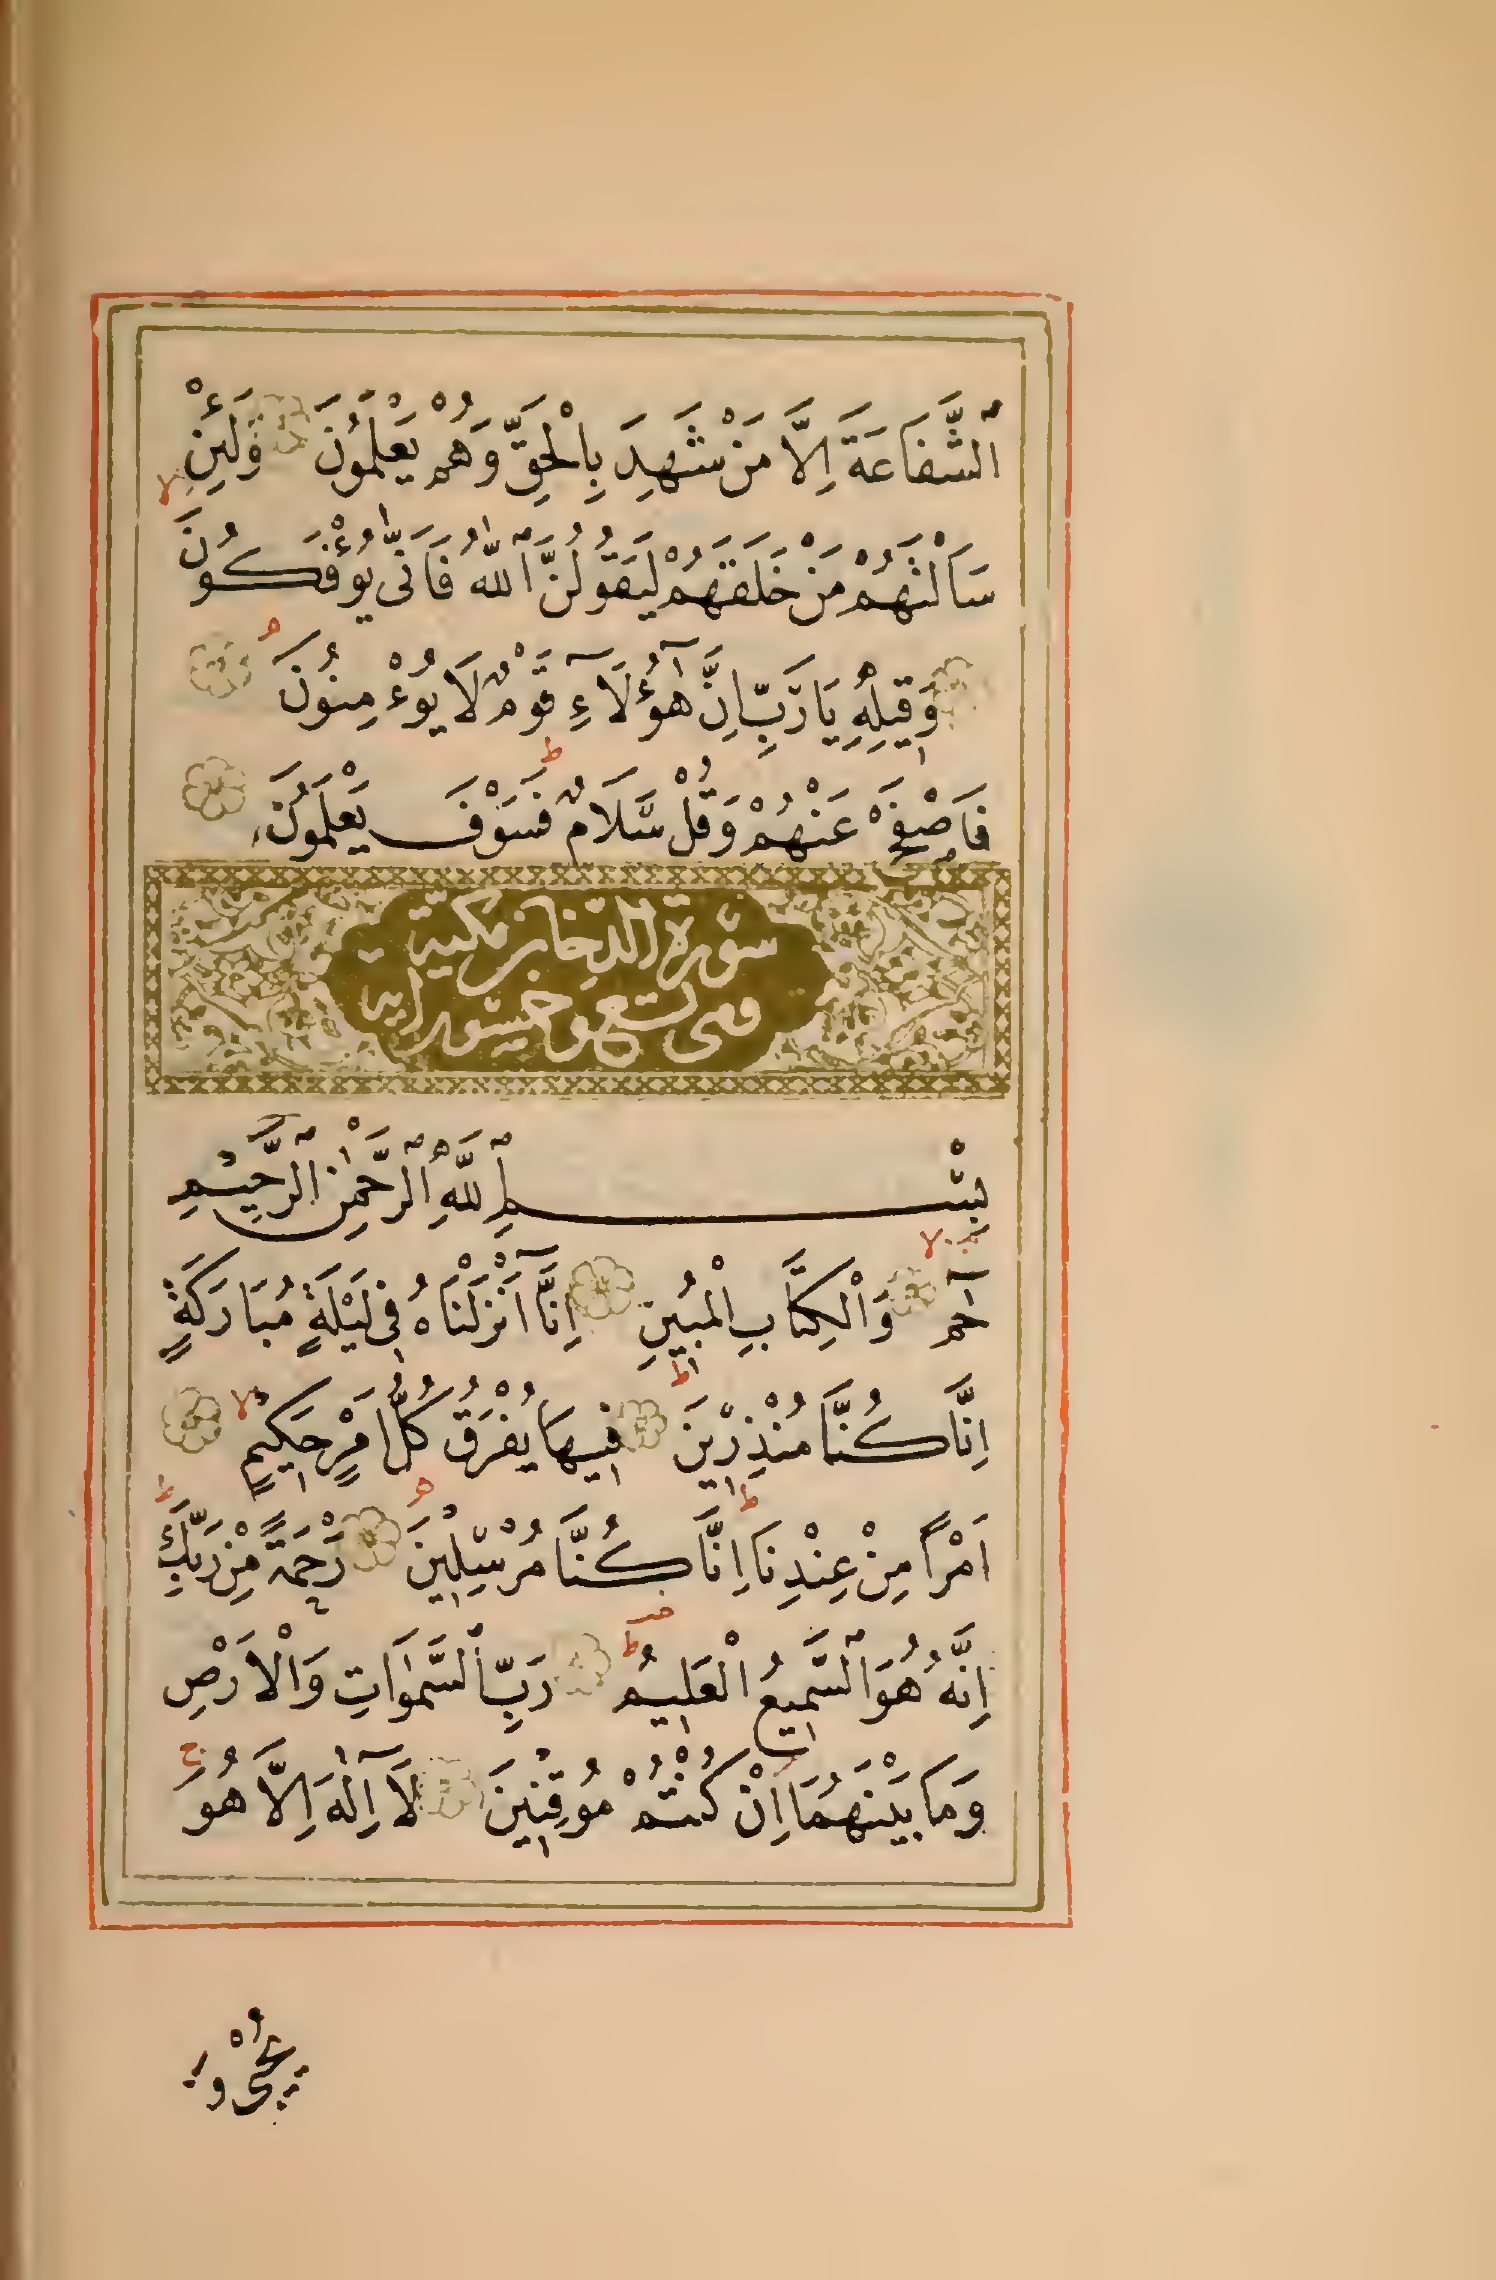 ٱلشَّفَاعَةَ اِلَّا مَنْ شَهِدَ بِالْحَقِّ وَهُمْ يَعْلَمُونَ وَلَئِنْ
سَاَلْتَهُمْ مَنْ خَلَقَهُمْ لَيَقُولُنَّ ٱللّٰهُ فَاَنّٰى يُؤْفَكُونَ
وَقِيلِهِ يَا رَبِّ اِنَّ هٰٓؤُلَآءِ قَوْمٌ لَا يُؤْمِنُونَ
فَاصْفَحْ عَنْهُمْ وَقُلْ سَلَامٌ فَسَوْفَ يَعْلَمُونَ
سورة الدخان مكية
وهى تسع وخمسون اية
بِسْمِ ٱللّٰهِ ٱلرَّحْمٰنِ ٱلرَّحِيمِ
حٰمٓ وَالْكِتَابِ الْمُبِينِ اِنَّٓا اَنْزَلْنَاهُ فِى لَيْلَةٍ مُبَارَكَةٍ
اِنَّا كُنَّا مُنْذِرِينَ فِيهَا يُفْرَقُ كُلُّ اَمْرٍ حَكِيمٍ
اَمْرًا مِنْ عِنْدِنَا اِنَّا كُنَّا مُرْسِلِينَ رَحْمَةً مِنْ رَبِّكَ
اِنَّهُ هُوَ ٱلسَّمِيعُ الْعَلِيمُ رَبِّ ٱلسَّمٰوَاتِ وَالْاَرْضِ
وَمَا بَيْنَهُمَا اِنْ كُنْتُمْ مُوقِنِينَ لَٓا اِلٰهَ اِلَّا هُوَ
يُحْيى وَ